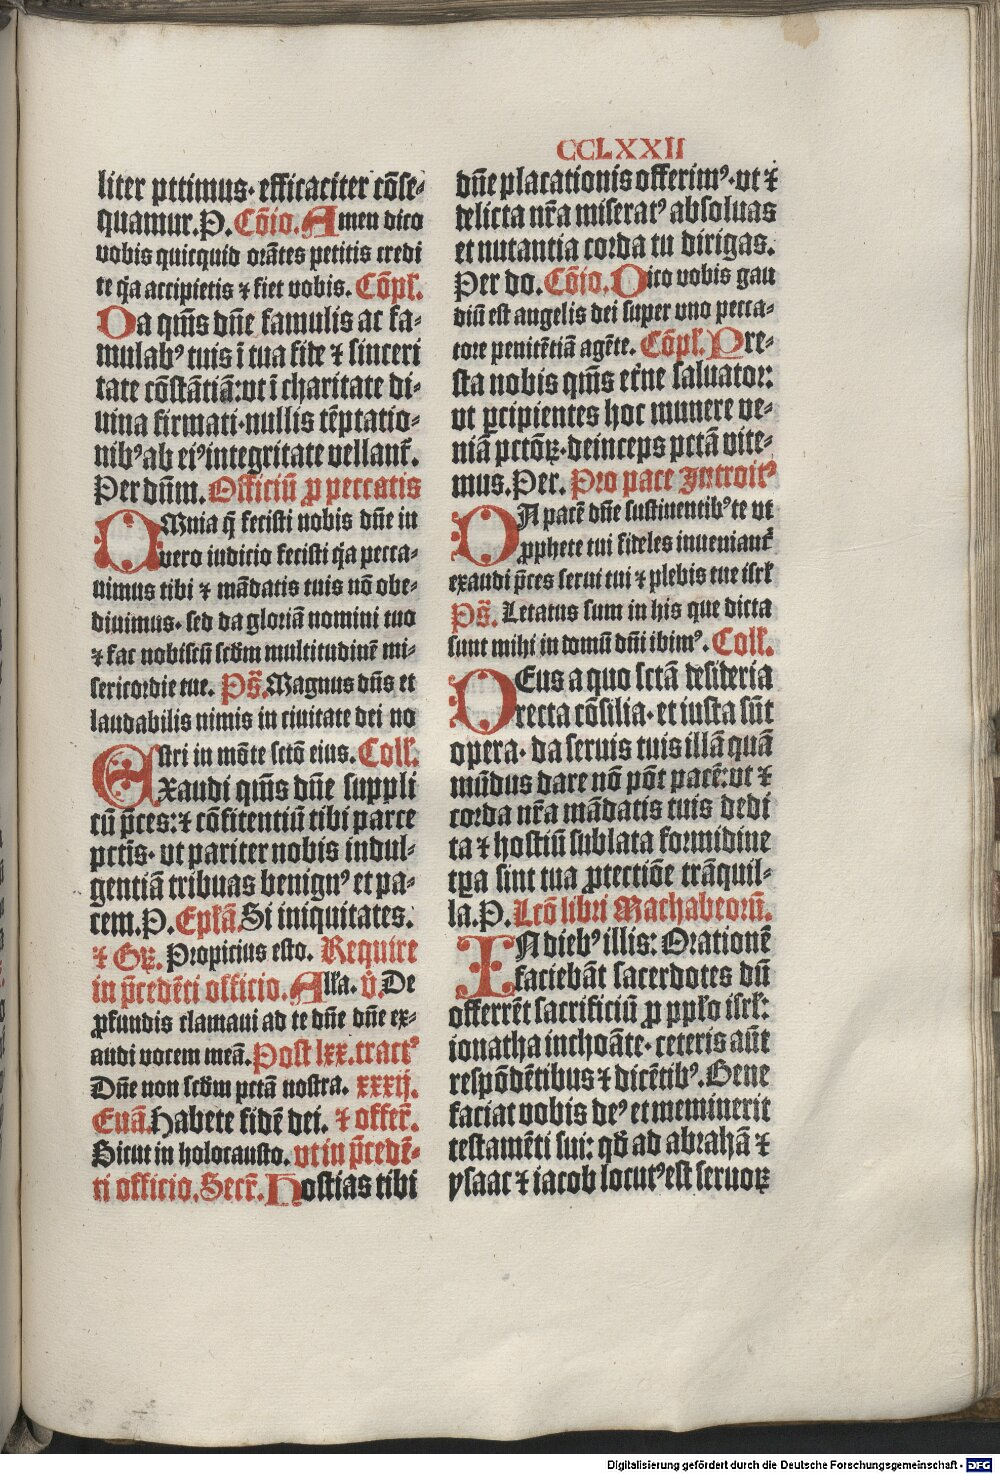 CCLXXII
liter pttimus· efficaciter cōse⸗
quamur.P. Cōīo. Amen dico
vobis quicquid orātes petitis credi
te q̇a accipietis ⁊ fiet vobis. Cōpl̄.
Da qm̄s dn̄e famulis ac fa⸗
mulabꝰ tuis ī tua fide ⁊ sinceri
tate cōstātiā:vt ī charitate di⸗
uina firmati·nullis tēptatio⸗
nibꝰ ab eiꝰ integritate vellant̄.
Per dn̄m. Officiū ꝓ peccatis
OMnia q̄ fecisti nobis dn̄e in
vero iudicio fecisti q̇a pecca⸗
uimus tibi ⁊ mādatis tuis nō obe⸗
diuimus· sed da gloriā nomini tuo
⁊ fac nobiscū scd̄m multitudinē mi⸗
sericordie tue. Ps̄. Magnus dn̄s et
laudabilis nimis in ciuitate dei no
stri in mōte sctō eius. Coll̄.
Exaudi qm̄s dn̄e suppli
cū p̄ces:⁊ cōfitentiū tibi parce
pctīs· vt pariter nobis indul⸗
gentiā tribuas benignꝰ et pa⸗
cem.P. Epl̄ā. Si iniquitates.
⁊ Gꝝ. Propicius esto. Require
in p̄cedēti officio. All̄a. v̄. De
ꝓfundis clamaui ad te dn̄e dn̄e ex⸗
audi vocem meā. Post lxx. tractꝰ
Dn̄e non scd̄m pctā nostra. xxxij.
Euā. Habete fidē dei. ⁊ offer̄.
Sicut in holocausto. vt in p̄cedē⸗
ti officio. Secr̄. Hostias tibi
dn̄e placationis offerimꝰ·vt ⁊
delicta nr̄a miseratꝰ absoluas
et nutantia corda tu dirigas.
Per do. Cōīo. Dico vobis gau
diū est angelis dei super vno pecca⸗
tore penitētiā agēte. Cōpl̄. Pre⸗
sta nobis qm̄s et̄ne saluator:
vt ꝑcipientes hoc munere ve⸗
niā pctōꝝ·deinceps pctā vite⸗
mus.Per. Pro pace Introitꝰ
DA pacē dn̄e sustinentibꝰ te vt
ꝓphete tui fideles inueniant̄
exaudi p̄ces serui tui ⁊ plebis tue isrl̄
Ps̄. Letatus sum in his que dicta
sunt mihi in domū dn̄i ibimꝰ. Coll̄.
DEus a quo sctā desideria
recta cōsilia·et iusta sūt
opera· da seruis tuis illā quā
mūdus dare nō pōt pacē:vt ⁊
corda nr̄a mādatis tuis dedi
ta ⁊ hostiū sublata formidine
tꝑa sint tua ꝓtectiōe trāquil⸗
la.P. Leō libri Machabeorū.
IN diebꝰ illis: Orationē
faciebāt sacerdotes dū
offerrēt sacrificiū ꝓ ppl̄o isrl̄:
ionatha inchoāte· ceteris aūt
respōdētibus ⁊ dicētibꝰ. Bene
faciat vobis deꝰ et meminerit
testamēti sui: qd̄ ad abrahā ⁊
ysaac ⁊ iacob locutꝰ est seruoꝝ
Digitalisierung gefördert durch die Deutsche Forschungsgemeinschaft - DFG